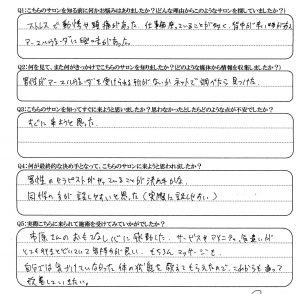 Q1:こちらのサロンを知る前に何かお悩みはありましたか?(どんな理由からこのようなサロンを探していましたか?)
ストレスで動悸や頭痛があった。仕事
アースヒーリング に興味があった。
Q2:何を見て、また何がきっかけでこちらのサロンを知りましたか?(どのような媒体から情報を収集しましたか?)
男性がアースヒーリングを受けられる所がないかネットで調べたら見つけた。
Q3:こちらのサロンを知ってすぐに来ようと思いましたか?思わなかったとしたらどのような点が不安でしたか?
すぐに来ようと思った。
Q4:何が最終的な決め手となって、こちらのサロンに来ようと思われましたか?
男性のセラピストがやっていることが決め手かな。
同性の方が話しやすいと思った(実際に話しやすい)
Q5:実際こちらに来られて施術を受けてみていかがでしたか?
市原さんのおもてなし心に感動した。サービスやアメニティ、気遣いが
とても行きとどいていて気持ちが良い。もちろんマッサージも
自分では気づけていなかった体の状態を教えてもらえたので、これからも通って
改善していきたい。